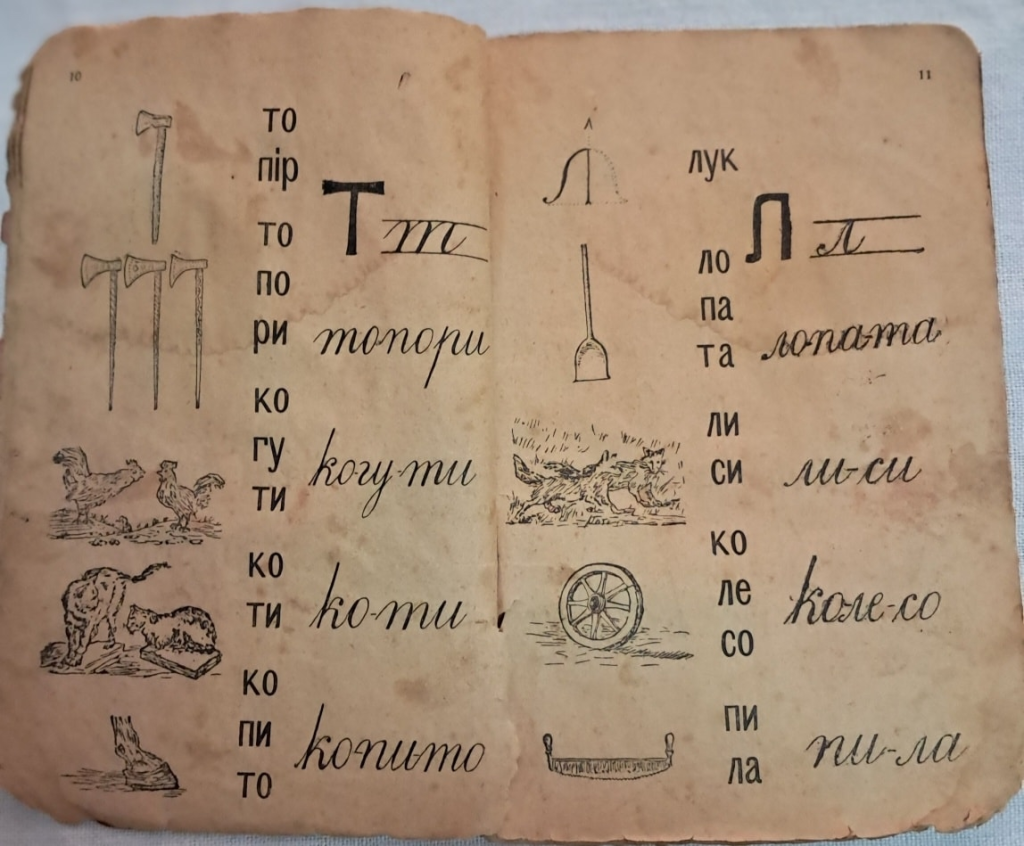 10
то
пір
Т т
то
по
ри
топори
ко
гу
ти
когу-ти
ко
ти
ко-ти
ко
пи
то
копи-то
11
лук
Л л
ло
па
та
лопа-та
ли
си
ли-си
ко
ле
со
коле-со
пи
ла
пи-ла